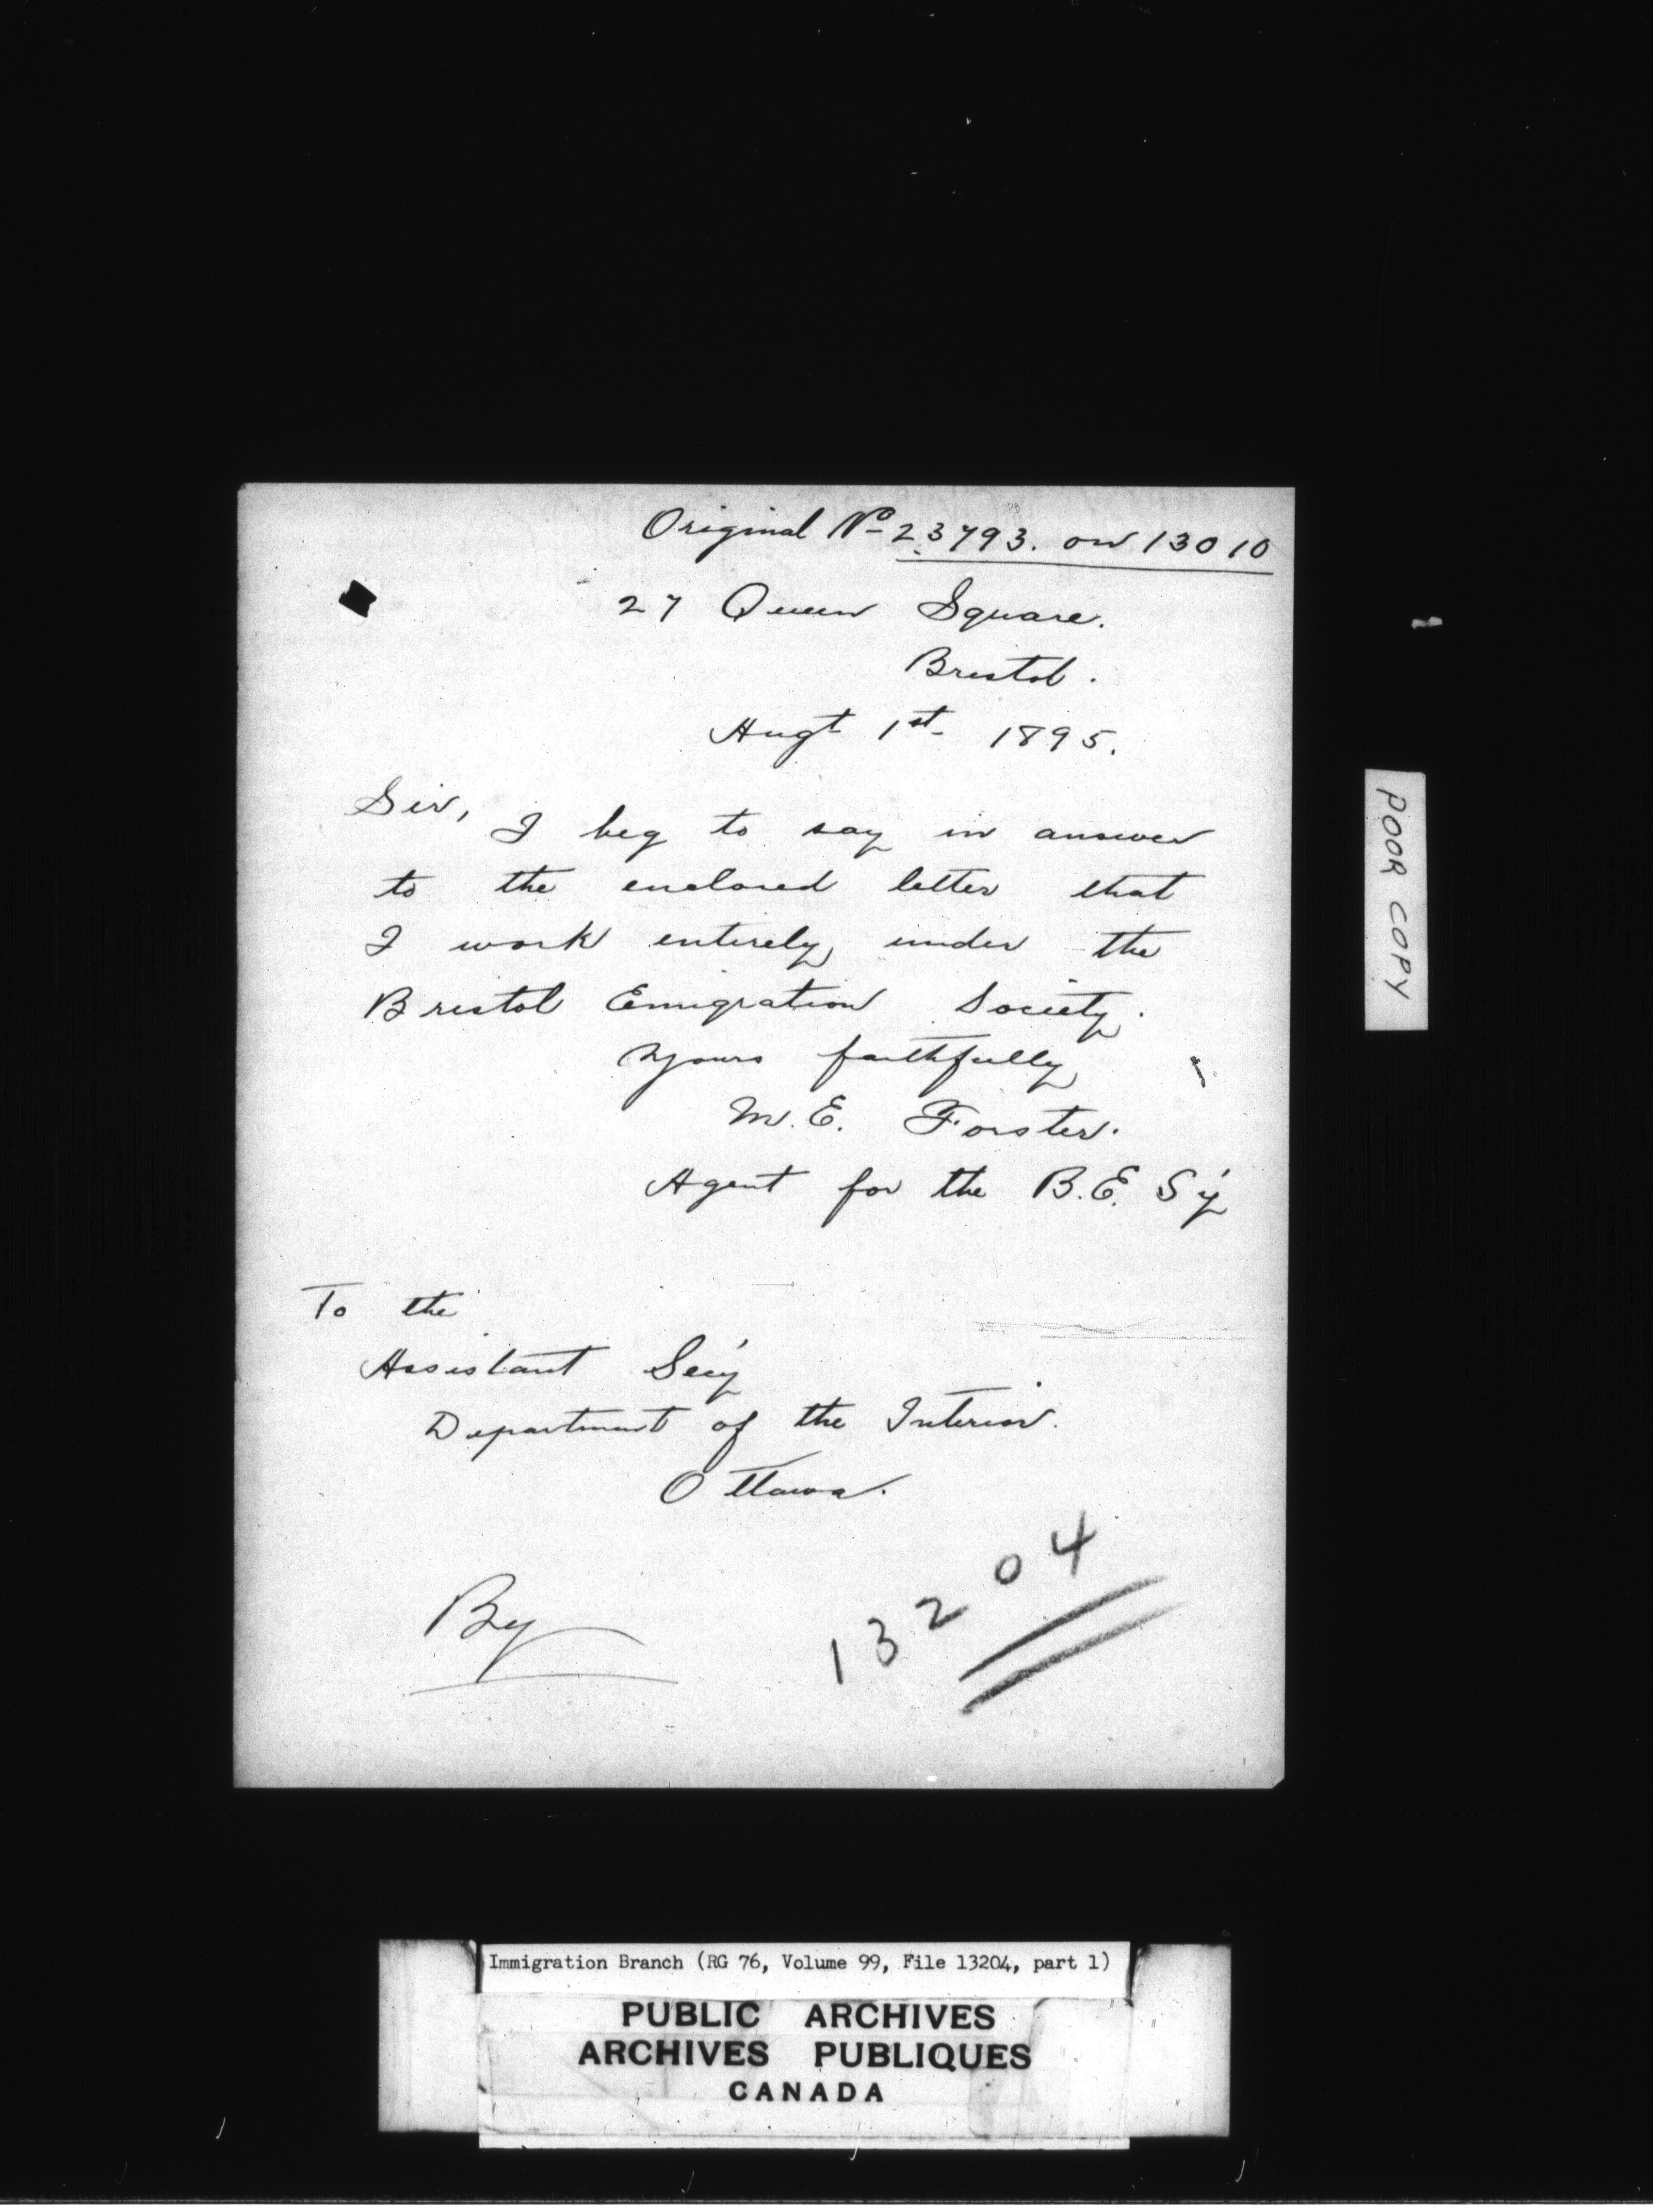 Original No 23793. on 13010
27 Queen Square.
Bristol.
Augt 1st 1895.
Sir,
I beg to say in answer
to the enclosed letter that
I work entirely under the
Bristol Emigration Society.
Yours faithfully
M. E. Forster.
Agent for the B.E. S'y
To the
Assistant Sec'y
Department of the Interior.
Ottawa.
By
13204
POOR COPY
Immigration Branch (RG 76, Volume 99, File 13204, part 1)
PUBLIC ARCHIVES
ARCHIVES PUBLIQUES
CANADA